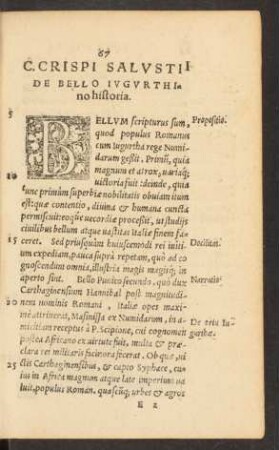 67
C. CRISPI SALVSTII
DE BELLO IVGVRTHI-
no historia.
5
BELLVM scripturus sum, Propositio.
quod populus Romanus
cum Iugurtha rege Numi-
darum gessit. Primũ, quia
magnum et atrox, uariaq;
10
uictoria fuit: deinde, quia
tunc primùm superbiæ nobilitatis obuiam itum
est: quæ contentio, diuina & humana cuncta
permiscuit: eoque uecordiæ processit, ut studijs
ciuilibus bellum atque uastitas Italiæ finem fa-
15 ceret. Sed priusquàm huiuscemodi rei initi-
um expediam, pauca suprà repetam, quò ad co Docilitas.
gnoscendum omnia, illustria magis magisq; in
aperto sint. Bello Punico secundo, quo dux Narratio.
Carthaginensium Hannibal post magnitudi-
20 nem nominis Romani, Italiæ opes maxi-
mè attriuerat, Masinissa rex Numidarum, in a- De ortu Iu-
micitiam receptus à P. Scipione, cui cognomen gurthæ.
postea Africano ex uirtute fuit, multa & præ-
clara rei militaris facinora fecerat. Ob quæ, ui
25 ctis Carthaginensibus, & capto Syphace, cu-
ius in Africa magnum atque latè imperium ua
luit, populus Roman. quascũq; urbes & agros
E 2